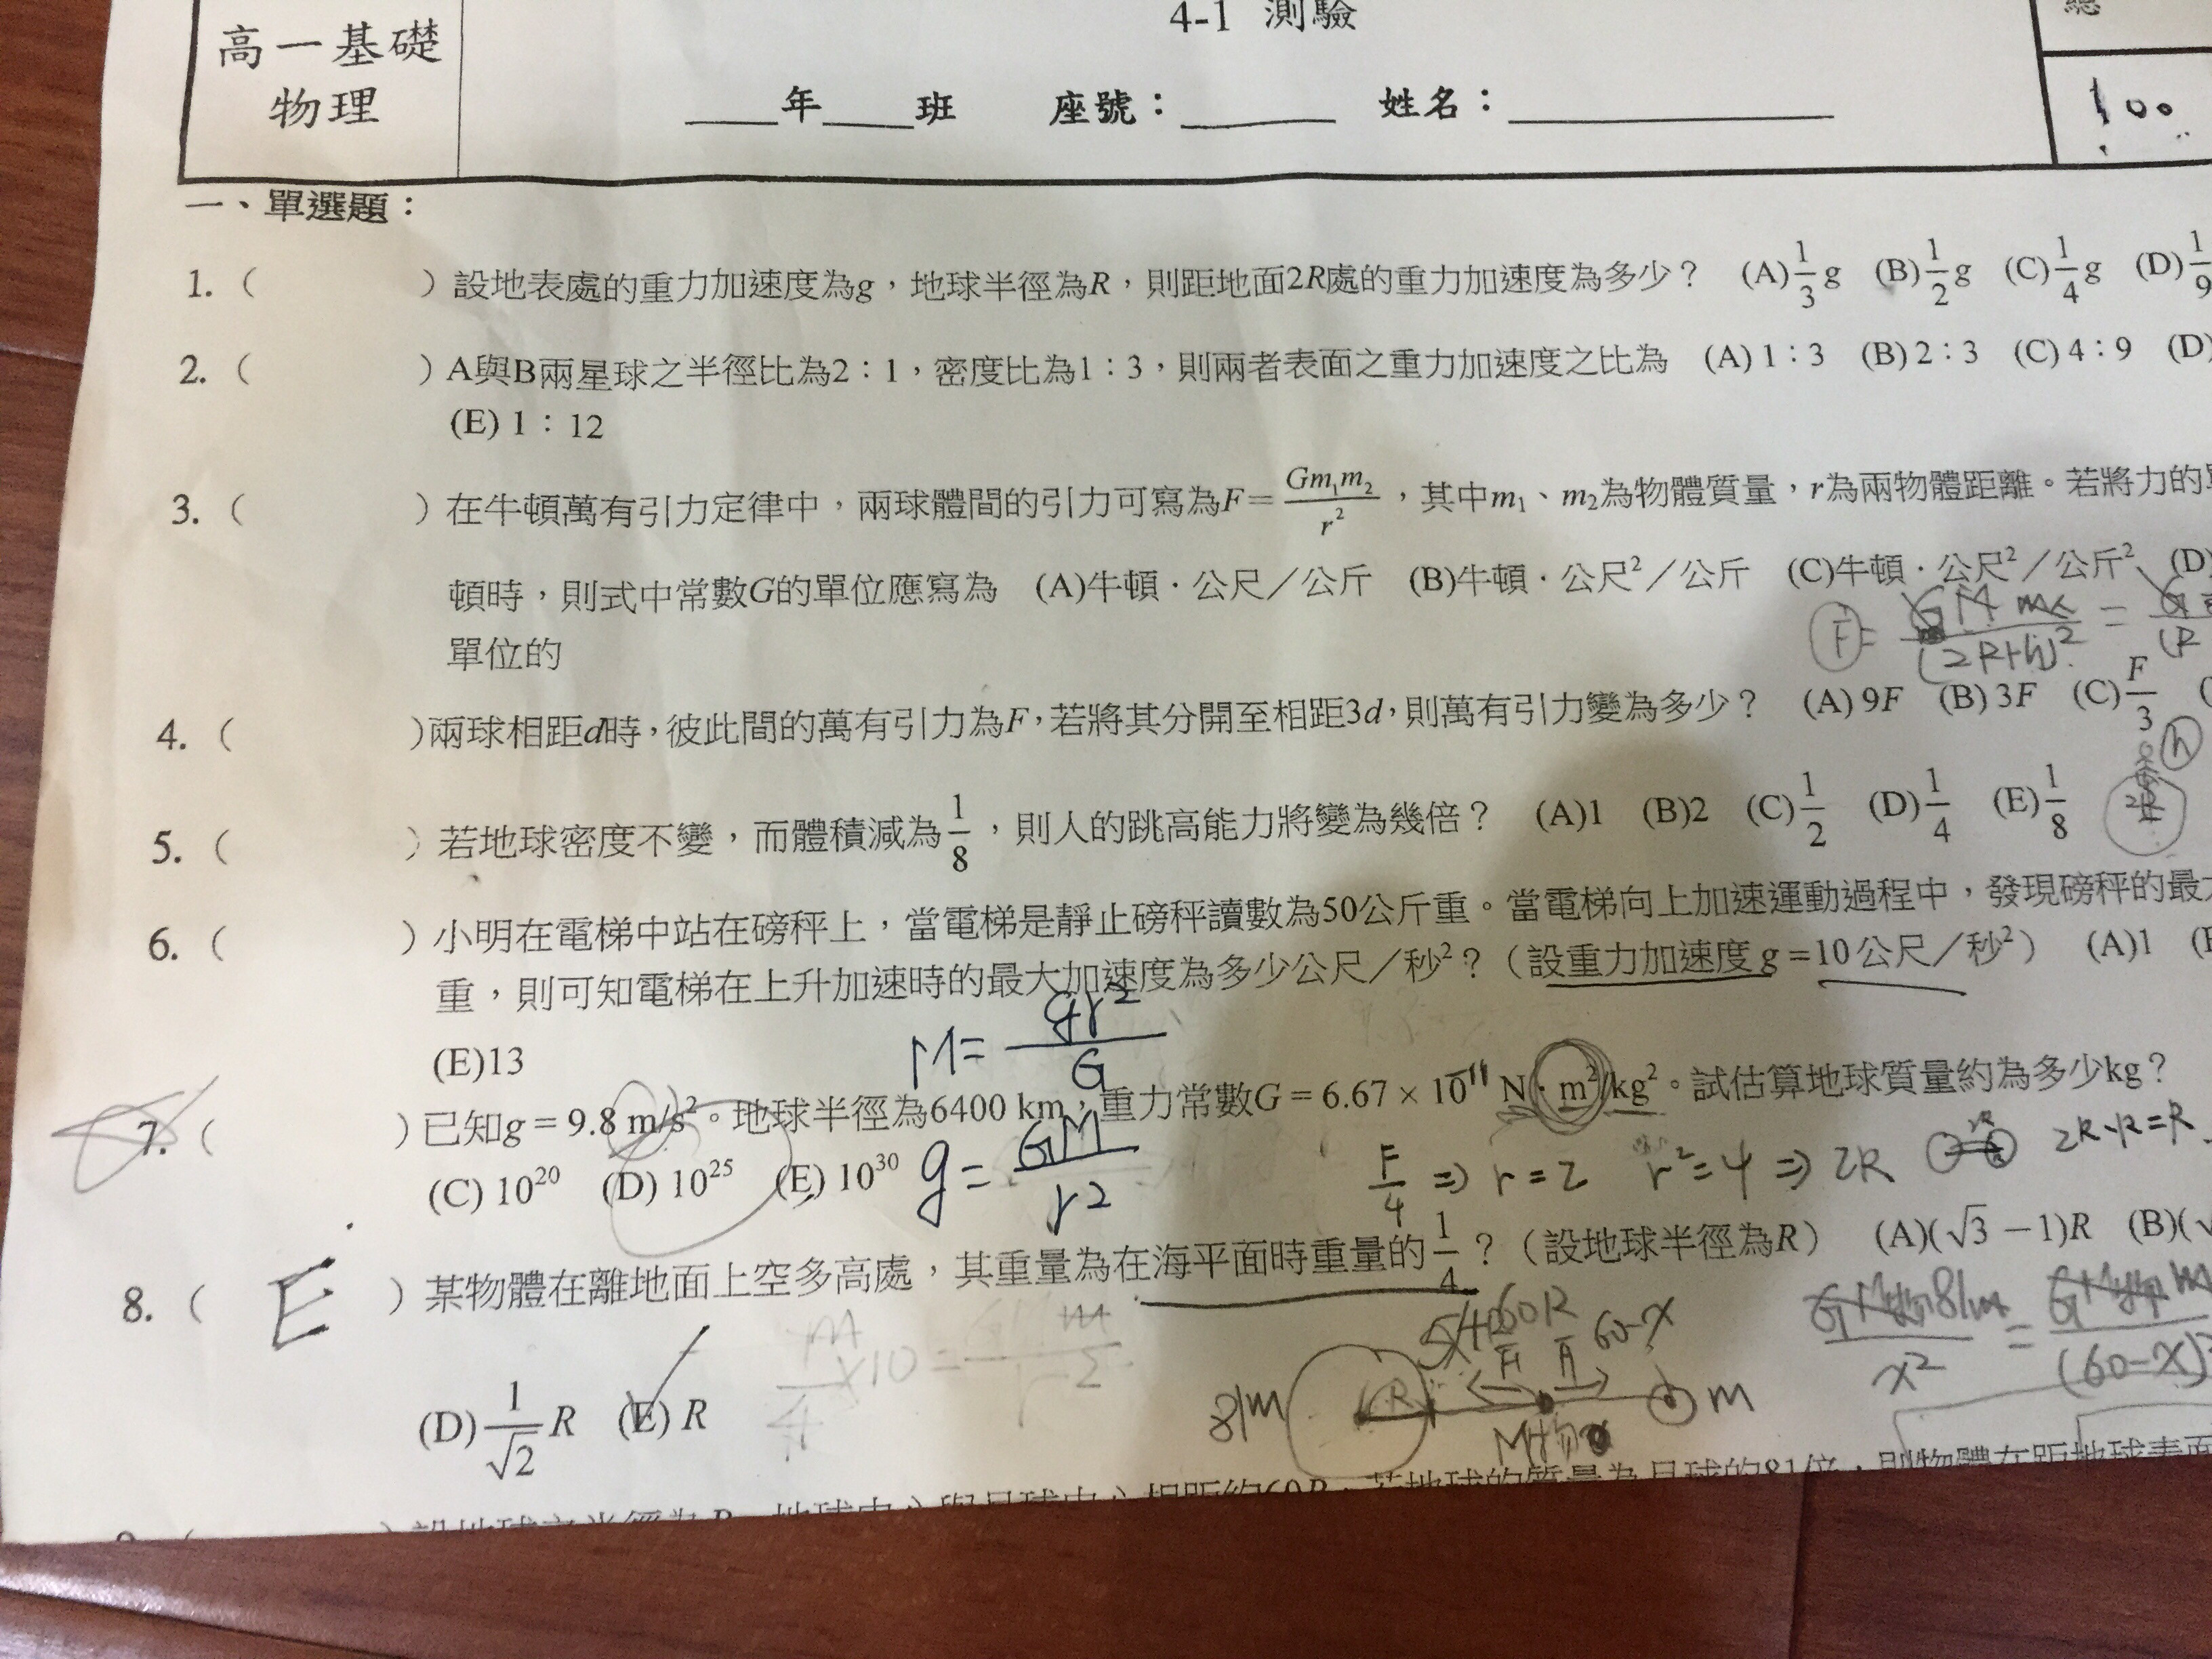 高一基礎
物理
4-1 測驗
總
____年____班 座號：______ 姓名：____________
100
一、單選題：
1. ( ) 設地表處的重力加速度為g，地球半徑為R，則距地面2R處的重力加速度為多少？ (A) 1/3 g (B) 1/2 g (C) 1/4 g (D) 1/9
2. ( ) A與B兩星球之半徑比為2：1，密度比為1：3，則兩者表面之重力加速度之比為 (A) 1：3 (B) 2：3 (C) 4：9 (D)
(E) 1：12
3. ( ) 在牛頓萬有引力定律中，兩球體間的引力可寫為F=Gm₁m₂/r²，其中m₁、m₂為物體質量，r為兩物體距離。若將力的
頓時，則式中常數G的單位應寫為 (A)牛頓．公尺／公斤 (B)牛頓．公尺²／公斤 (C)牛頓．公尺²／公斤² (D)
單位的
4. ( )兩球相距d時，彼此間的萬有引力為F，若將其分開至相距3d，則萬有引力變為多少？ (A) 9F (B) 3F (C) F/3
h
2R
5. ( ) 若地球密度不變，而體積減為1/8，則人的跳高能力將變為幾倍？ (A)1 (B)2 (C)1/2 (D)1/4 (E)1/8
6. ( ) 小明在電梯中站在磅秤上，當電梯是靜止磅秤讀數為50公斤重。當電梯向上加速運動過程中，發現磅秤的最
重，則可知電梯在上升加速時的最大加速度為多少公尺／秒²？（設重力加速度 g =10 公尺／秒²） (A)1
(E)13
M= gr²/G
7. ( ) 已知g = 9.8 m/s²。地球半徑為6400 km，重力常數G = 6.67 × 10⁻¹¹ N · m²/kg²。試估算地球質量約為多少kg？
(C) 10²⁰ (D) 10²⁵ (E) 10³⁰
g= GM/r²
F/4 ⇒ r=2 r²=4 ⇒ 2R
2R-R=R
8. ( E ) 某物體在離地面上空多高處，其重量為在海平面時重量的1/4？（設地球半徑為R） (A)(√3 − 1)R (B)(√
(D) 1/√2 R (E) R
60R 60-x
81m R m
x² = (60-x)²